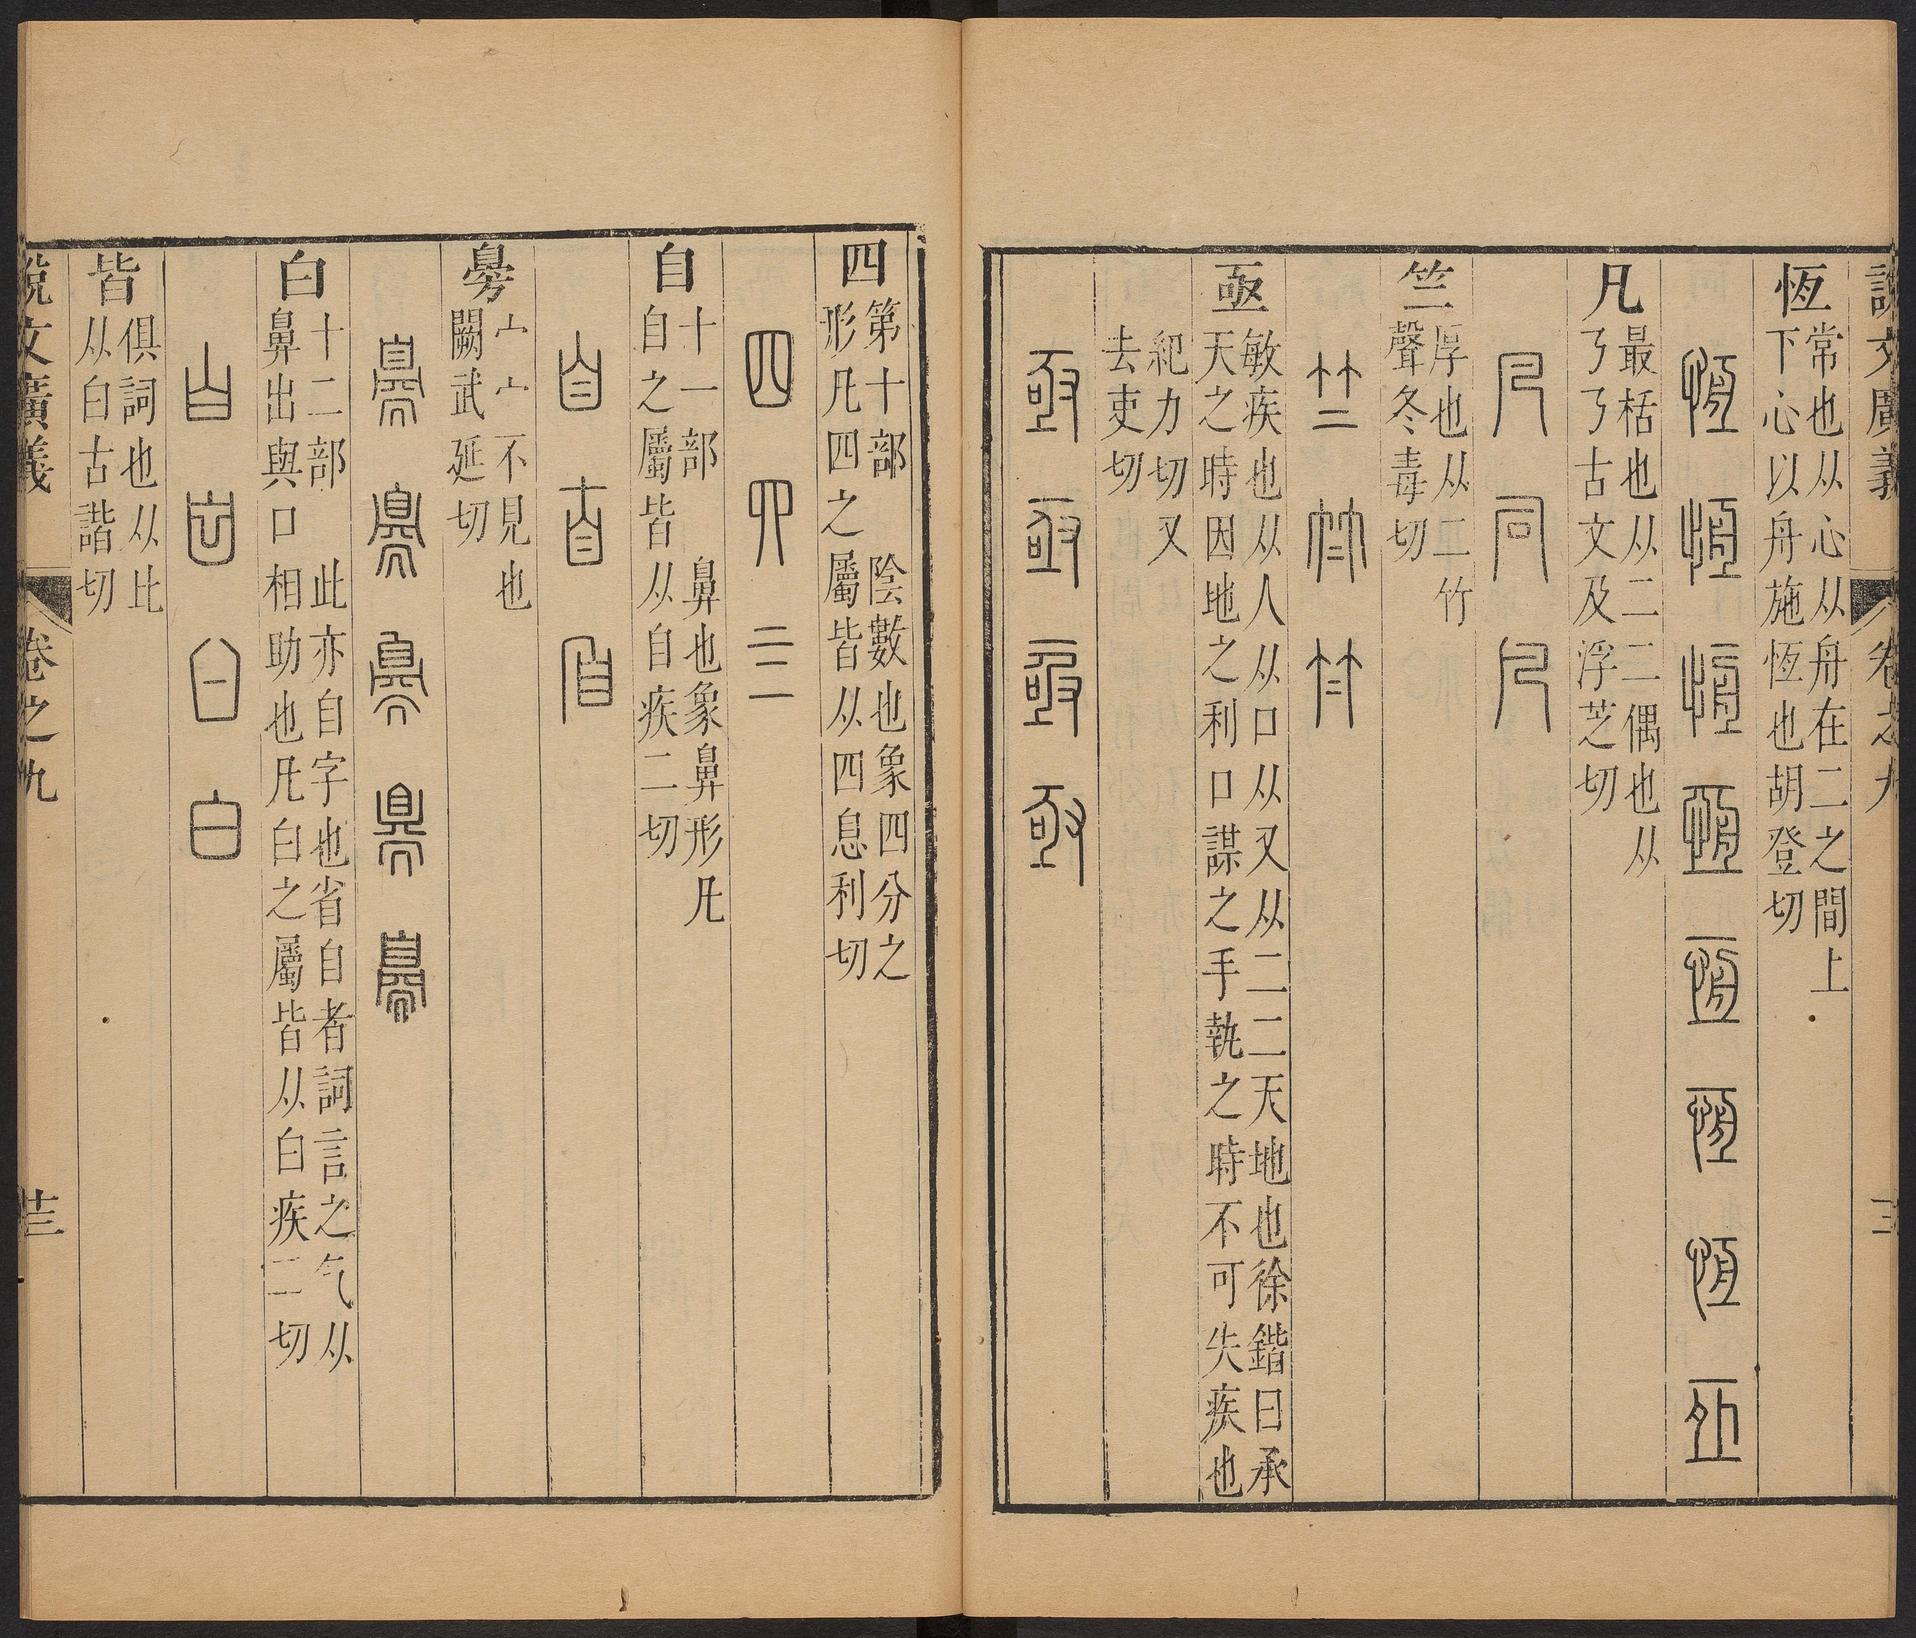 說文廣義
卷之九
恆
常也从心从舟在二之間上
下心以舟施恆也胡登切
凡
最括也从二二偶也从
㇋㇋古文及浮芝切
竺
厚也从二竹
聲冬毒切
亟
敏疾也从人从口从又从二二天地也徐鍇曰承
天之時因地之利口謀之手執之時不可失疾也
紀力切又
去吏切
四
第十部 陰數也象四分之
形凡四之屬皆从四息利切
自
十一部 鼻也象鼻形凡
自之屬皆从自疾二切
臱
宀宀不見也
闕武延切
白
十二部 此亦自字也省自者詞言之气从
鼻出與口相助也凡白之屬皆从白疾二切
皆
俱詞也从比
从白古諧切
說文廣義
卷之九